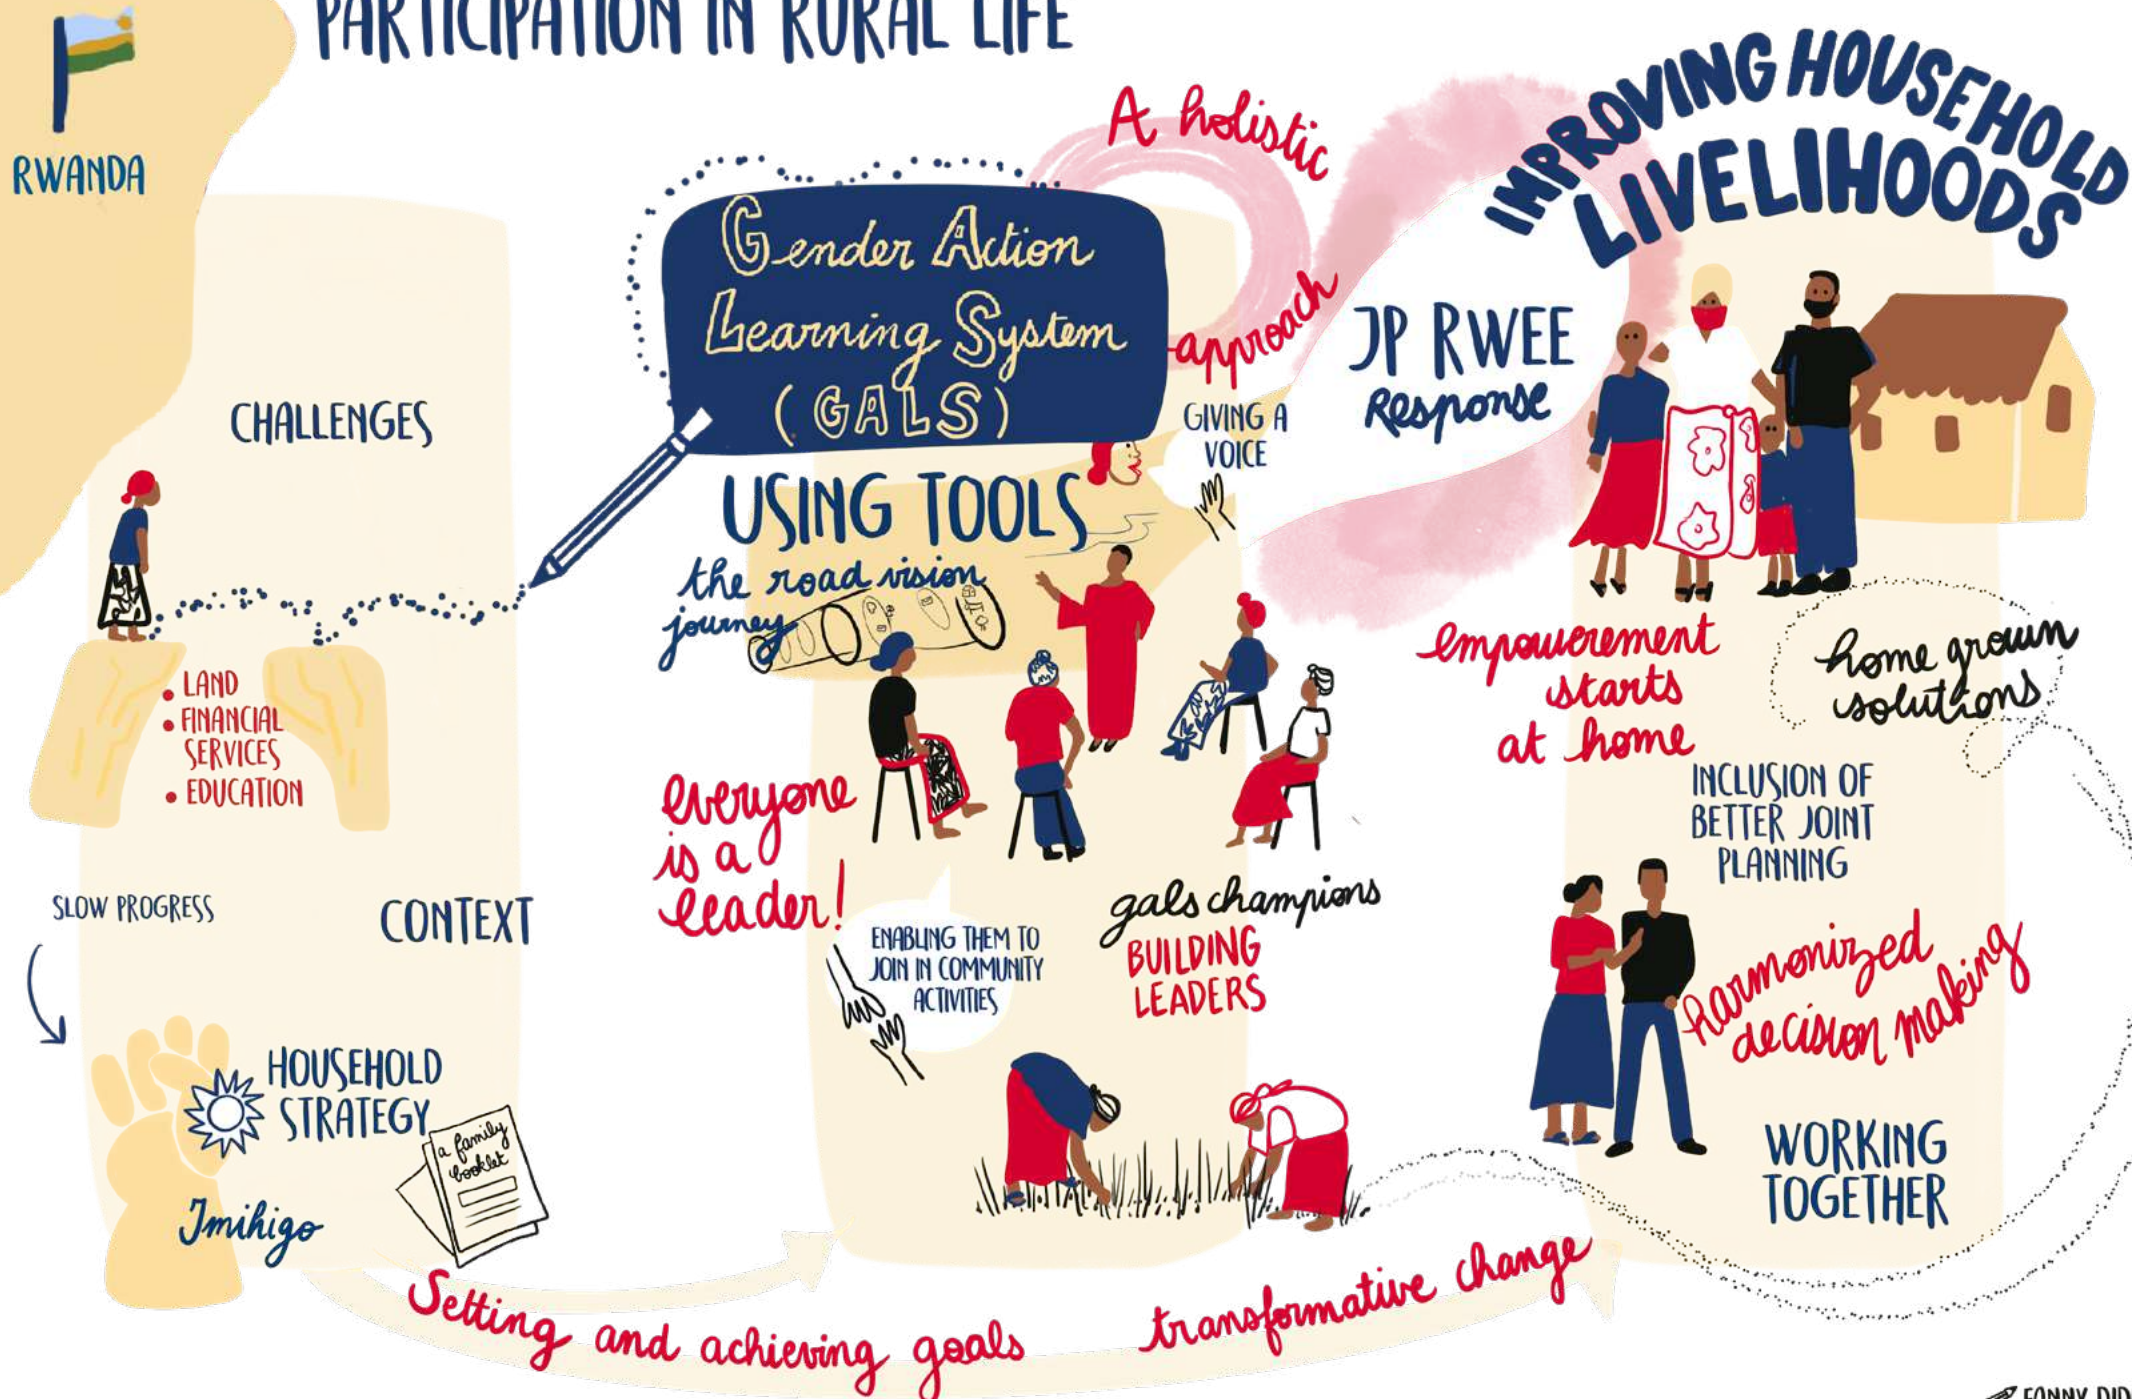 PARTICIPATION IN RURAL LIFE
RWANDA
CHALLENGES
• LAND
• FINANCIAL
SERVICES
• EDUCATION
SLOW PROGRESS
CONTEXT
HOUSEHOLD
STRATEGY
a family
booklet
Imihigo
Gender Action
Learning System
(GALS)
A holistic
approach
GIVING A
VOICE
USING TOOLS
the road vision
journey
everyone
is a
leader!
ENABLING THEM TO
JOIN IN COMMUNITY
ACTIVITIES
gals champions
BUILDING
LEADERS
JP RWEE
Response
IMPROVING HOUSEHOLD
LIVELIHOODS
empowerement
starts
at home
home grown
solutions
INCLUSION OF
BETTER JOINT
PLANNING
harmonized
decision making
WORKING
TOGETHER
Setting and achieving goals
transformative change
FANNY DID